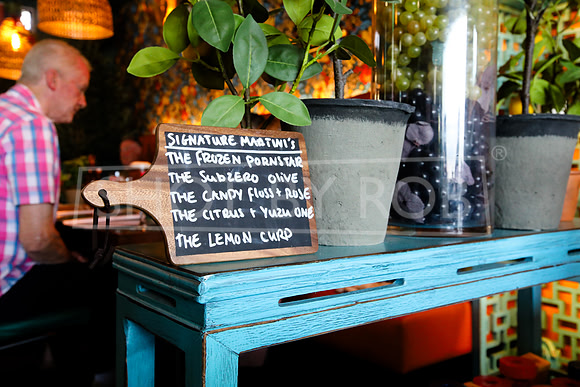 SIGNATURE MARTINI'S
THE FROZEN PORNSTAR
THE SUBZERO OLIVE
THE CANDY FLOSS + ROSE
THE CITRUS + YUZU ONE
THE LEMON CURD